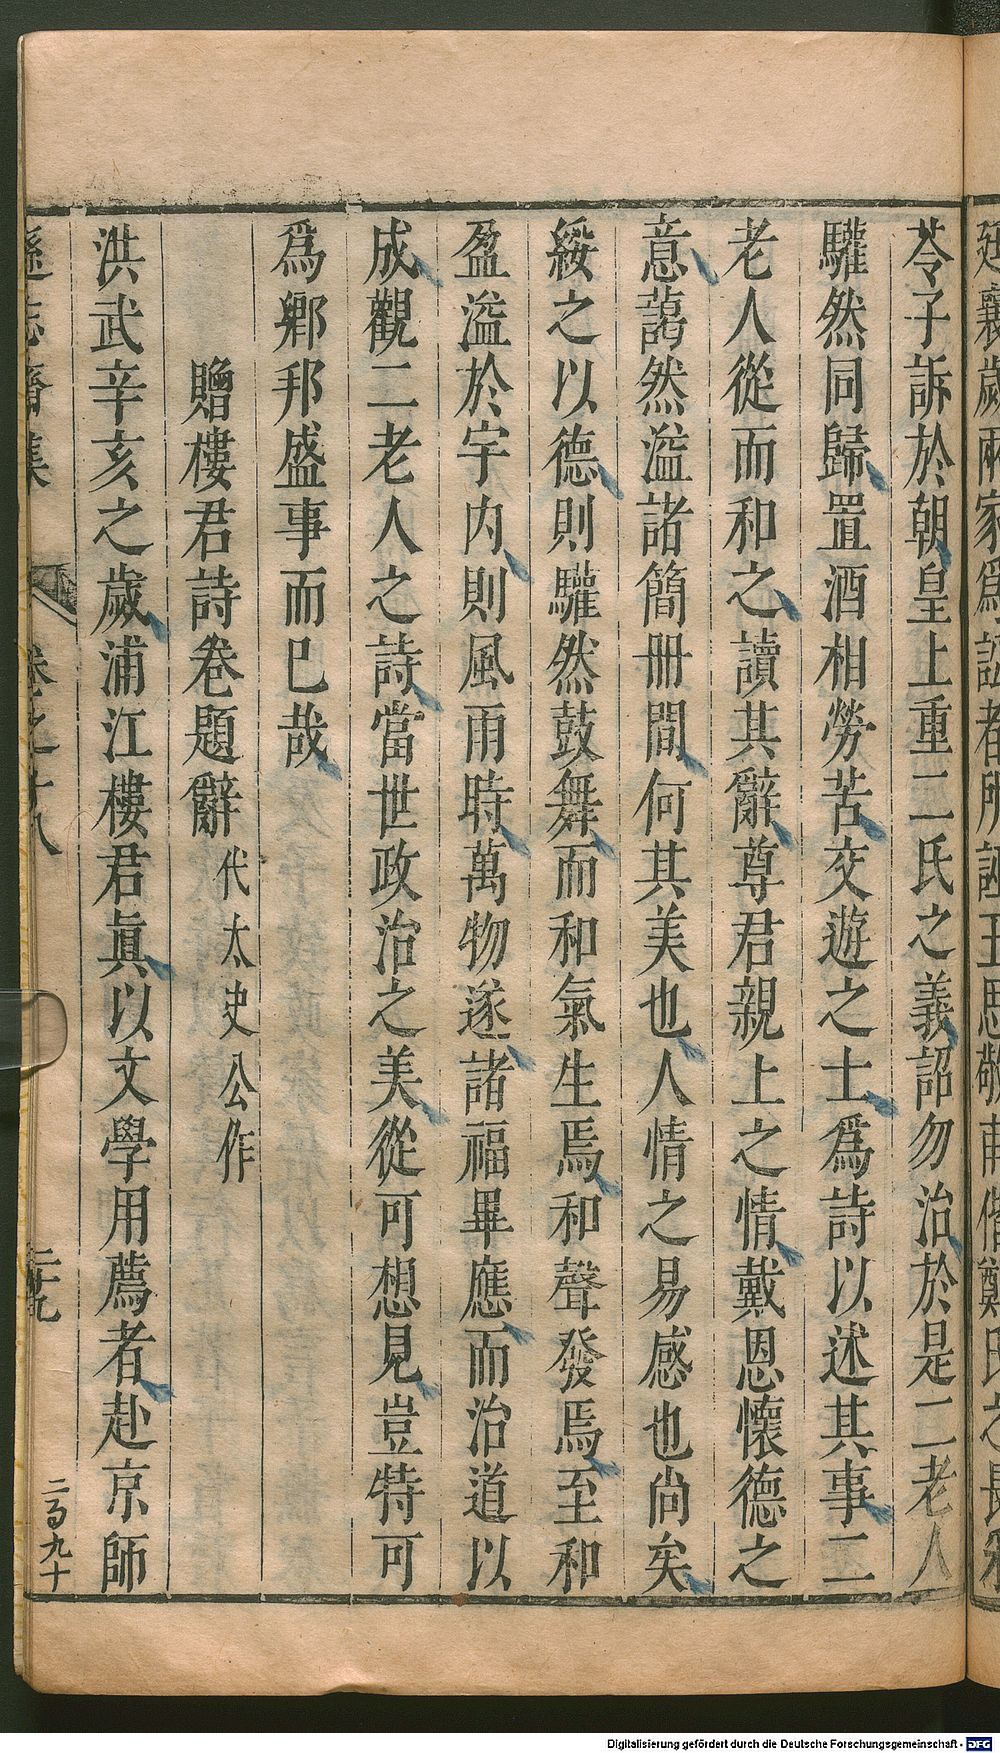 苓子訴於朝皇上重二氏之義詔勿治於是二老人
驩然同歸置酒相勞苦交遊之士爲詩以述其事二
老人從而和之讀其辭尊君親上之情戴恩懷德之
意藹然溢諸簡冊間何其美也人情之易感也尚矣
綏之以德則驩然鼓舞而和氣生焉和聲發焉至和
盈溢於宇内則風雨時萬物遂諸福畢應而治道以
成觀二老人之詩當世政治之美從可想見豈特可
爲鄉邦盛事而巳哉
贈樓君詩卷題辭 代太史公作
洪武辛亥之歲浦江樓君眞以文學用薦者赴京師
遜志齋集 卷之十八 二十九
Digitalisierung gefördert durch die Deutsche Forschungsgemeinschaft - DFG